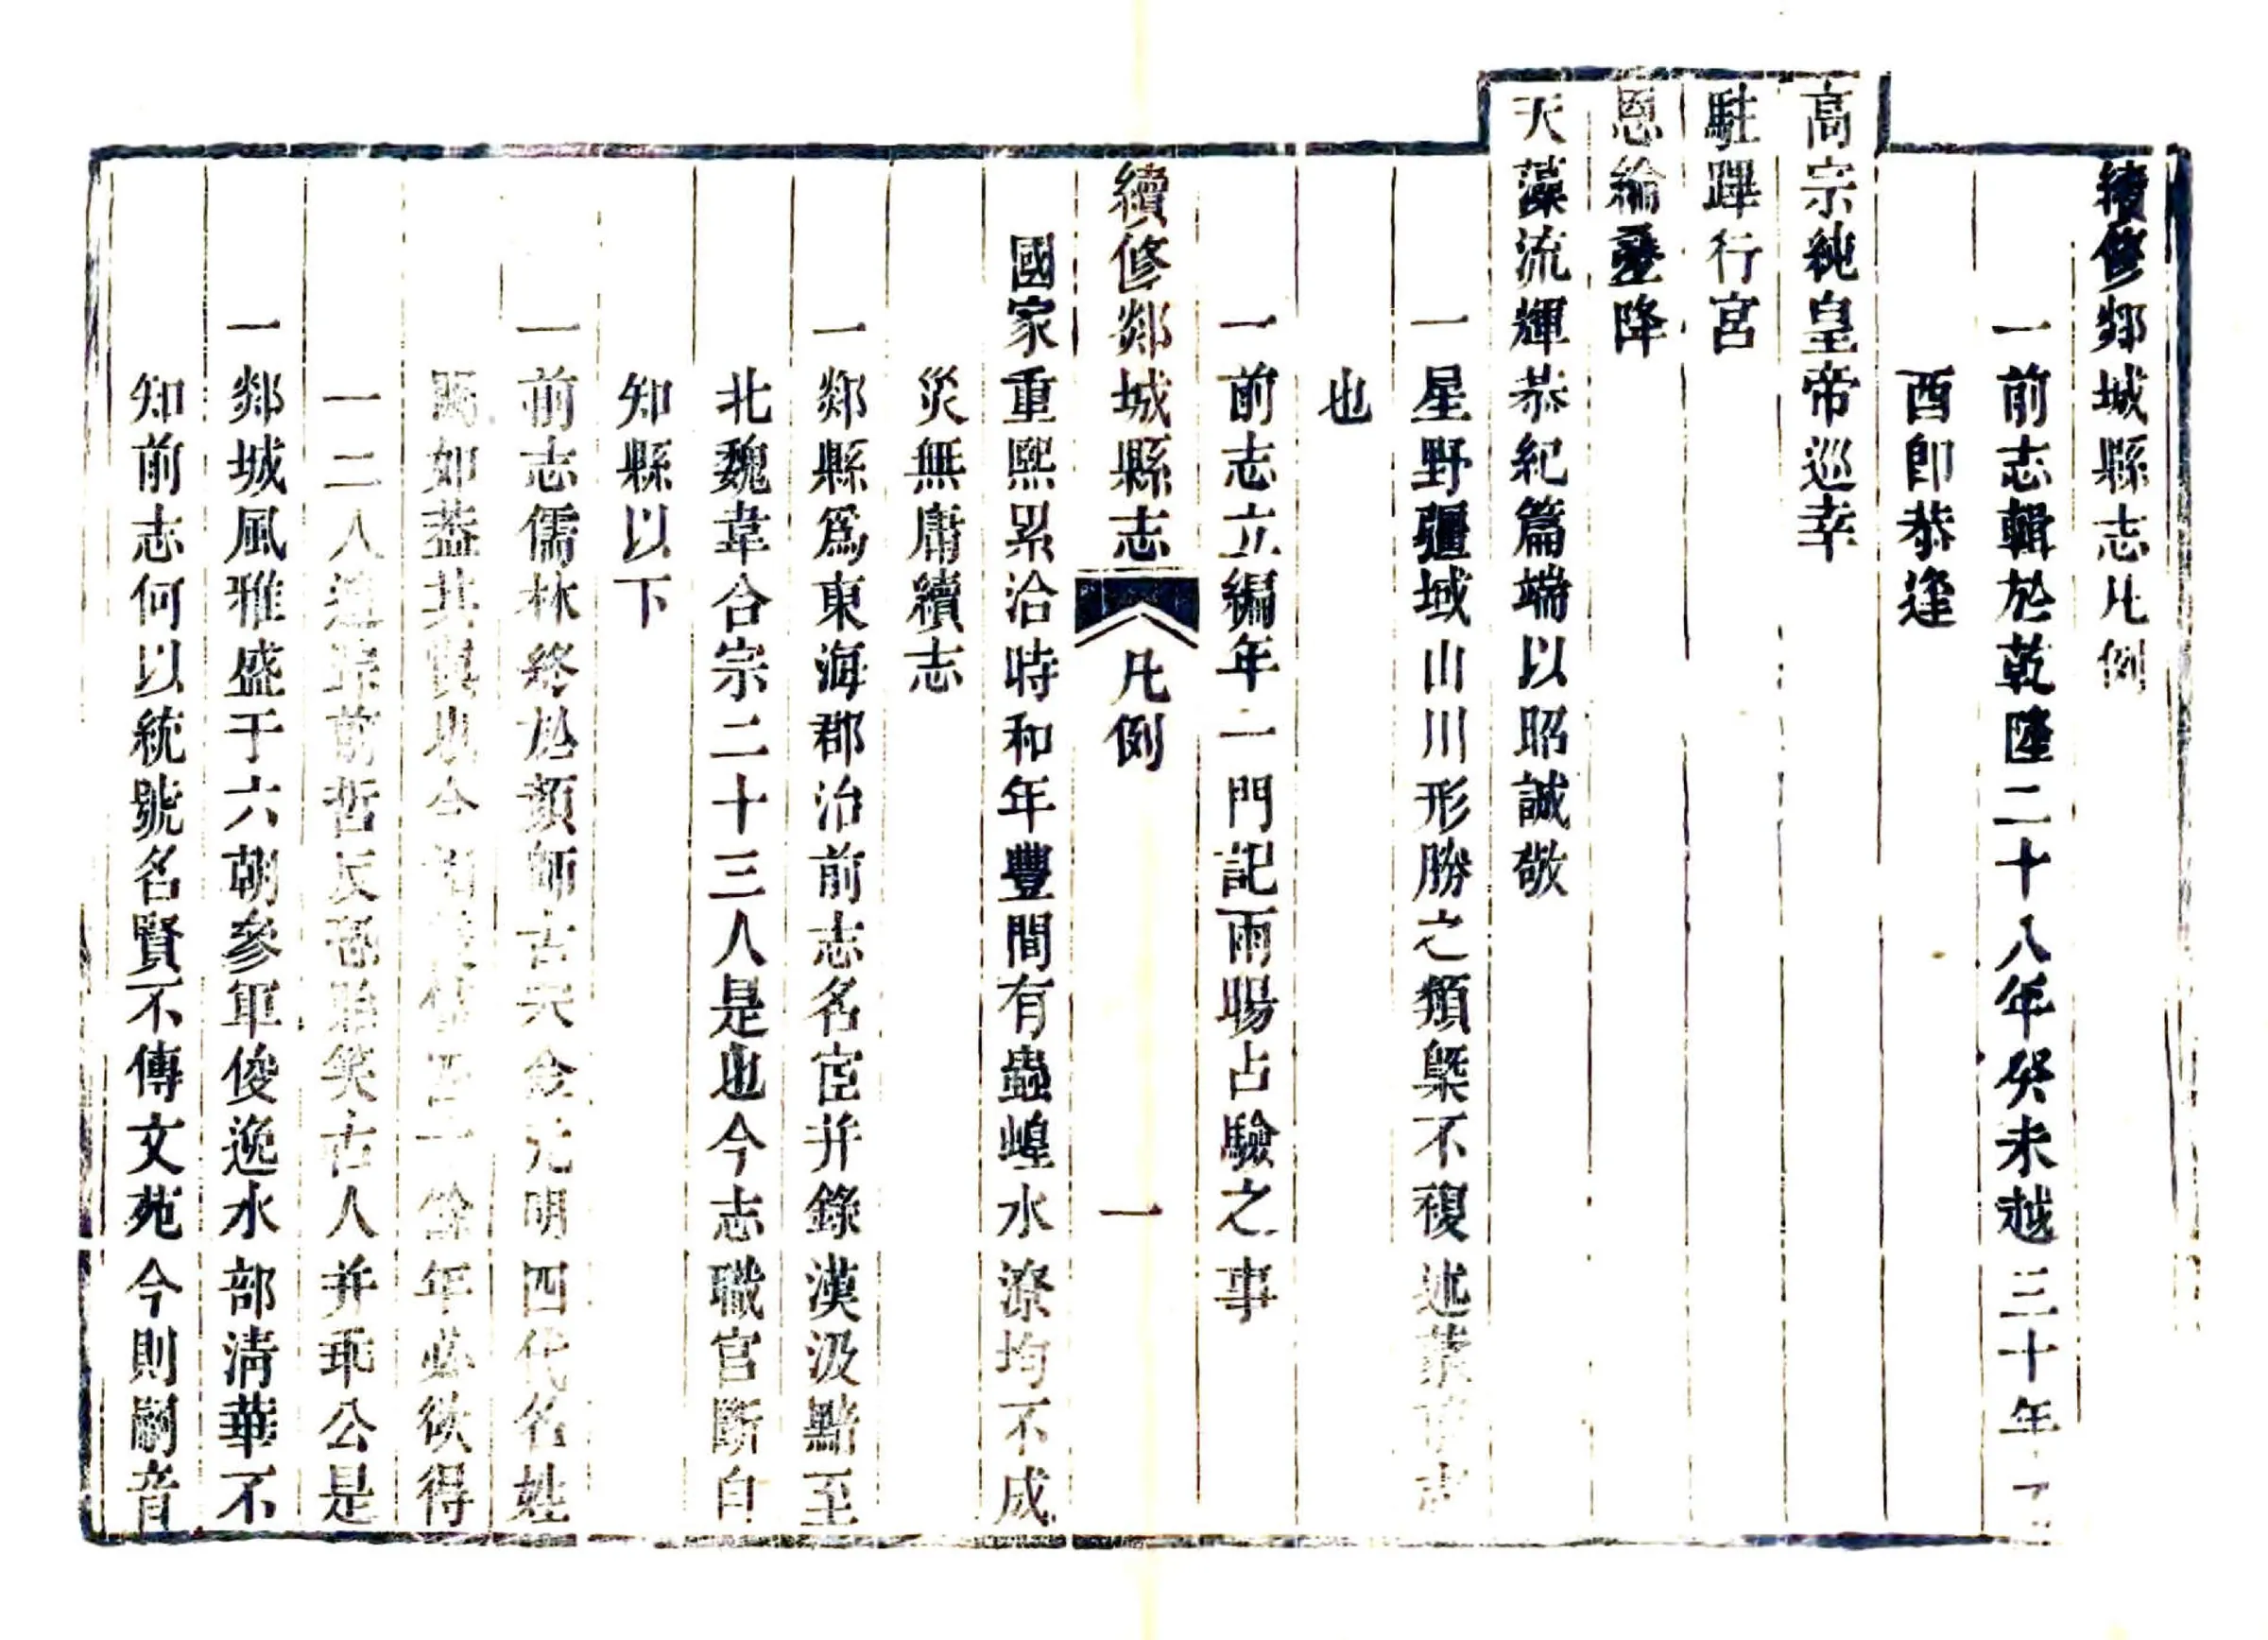 續修郯城縣志凡例
一前志輯於乾隆二十八年癸未越三十年
酉即恭逢
高宗純皇帝巡幸
駐蹕行宮
恩綸疊降
天藻流輝恭紀篇端以昭誠敬
一星野疆域山川形勝之類槩不複述
也
一前志立編年一門記雨暘占驗之事
續修郯城縣志 凡例 一
國家重熙累洽時和年豐間有蟲蝗水潦均不成
災無庸續志
一郯縣爲東海郡治前志名宦并錄漢汲黯至
北魏韋合宗二十三人是也今志職官斷自
知縣以下
一前志儒林終於顏師古宋金元明四代名姓
如葢其慎也今一餘年必欲得
一二人追前哲反恐貽笑古人并乖公是
一郯城風雅盛于六朝參軍俊逸水部清華不
知前志何以統號名賢不傳文苑今則嗣音